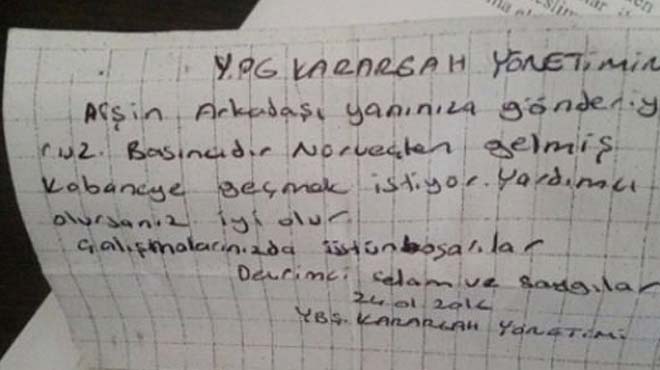 Y.P.G KARARGAH YÖNETİMİN
Afşin Arkadaşı yanınıza gönderiy
ruz. Basıncıdır Norveçten gelmiş
Kobaneye geçmek istiyor. Yardımcı
olursanız iyi olur
Çalışmalarınızda üstün başarılar
Devrimci selam ve saygılar
YBŞ. KARARGAH YÖNETİMİ